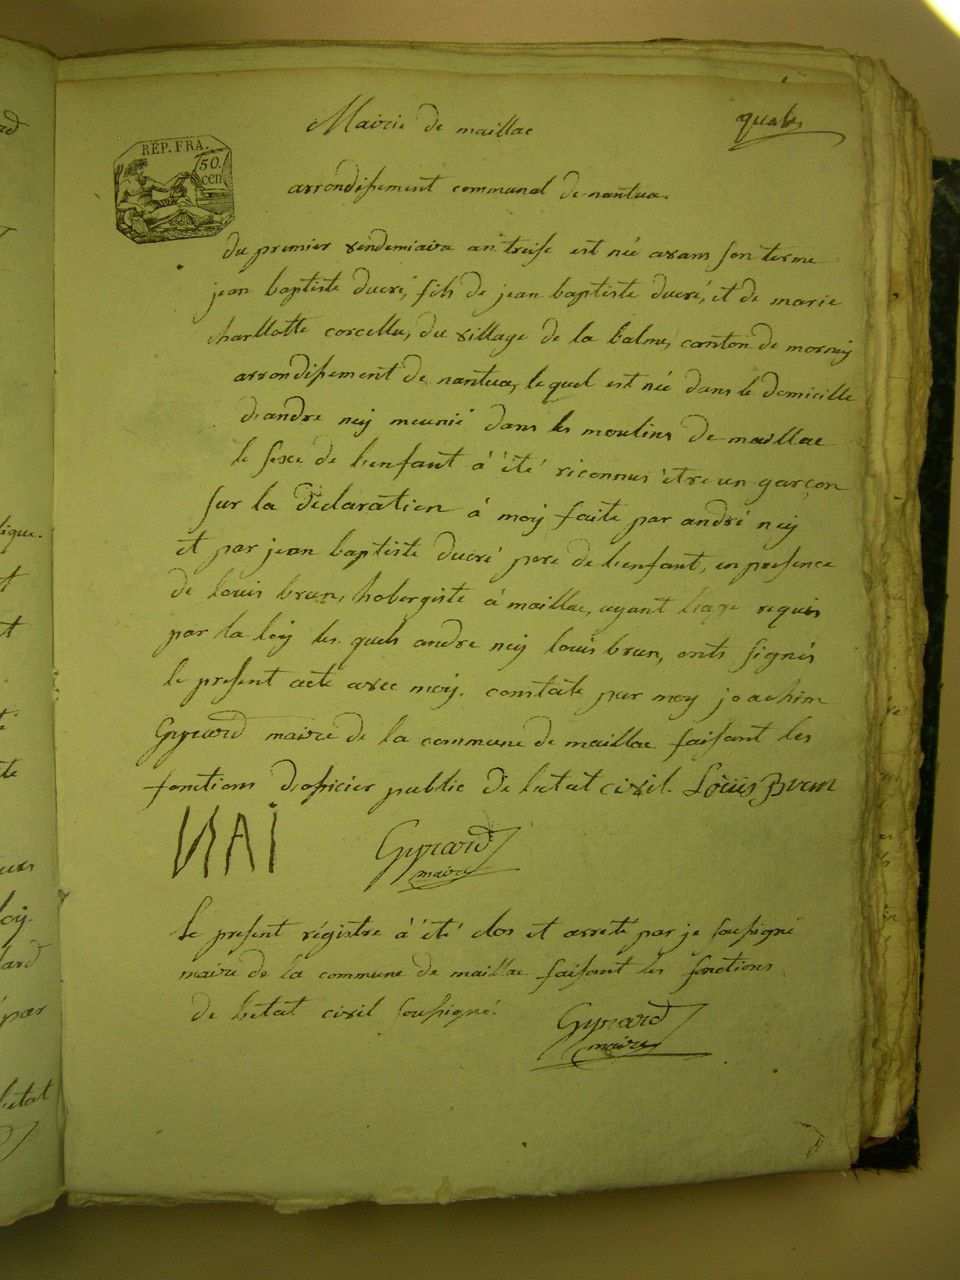 Mairie de maillac
quatre
REP. FRA.
50.
cen
arrondissement communal de nantua.
du premier vendemiaire an treise est née avans son terme
jean baptiste ducré, fils de jean baptiste ducré, et de marie
charllotte corcelle, du village de la balme, canton de mornay
arrondissement de nantua, le quel est née dans le domicille
d'andre ney meunié dans les moulins de maillac
le sexe de l'enfant à été reconnus être un garçon
sur la déclaration à moy faite par andré ney
et par jean baptiste ducré pere de l'enfant, en presence
de louis brun, hobergiste à maillac, ayant l'age requis
par la loy les quels andre ney louis brun, onts signés
le present acte avec moy. constaté par moy joachim
Gyrard maire de la commune de maillac faisant les
fonctions d'oficier public de l'etat civil. Loüis Brun
NAI
Gyrard
maire
Le present régistre à été clos et arreté par je soussigné
maire de la commune de maillac faisant les fonctions
de l'etat civil soussigné.
Gyrard
maire